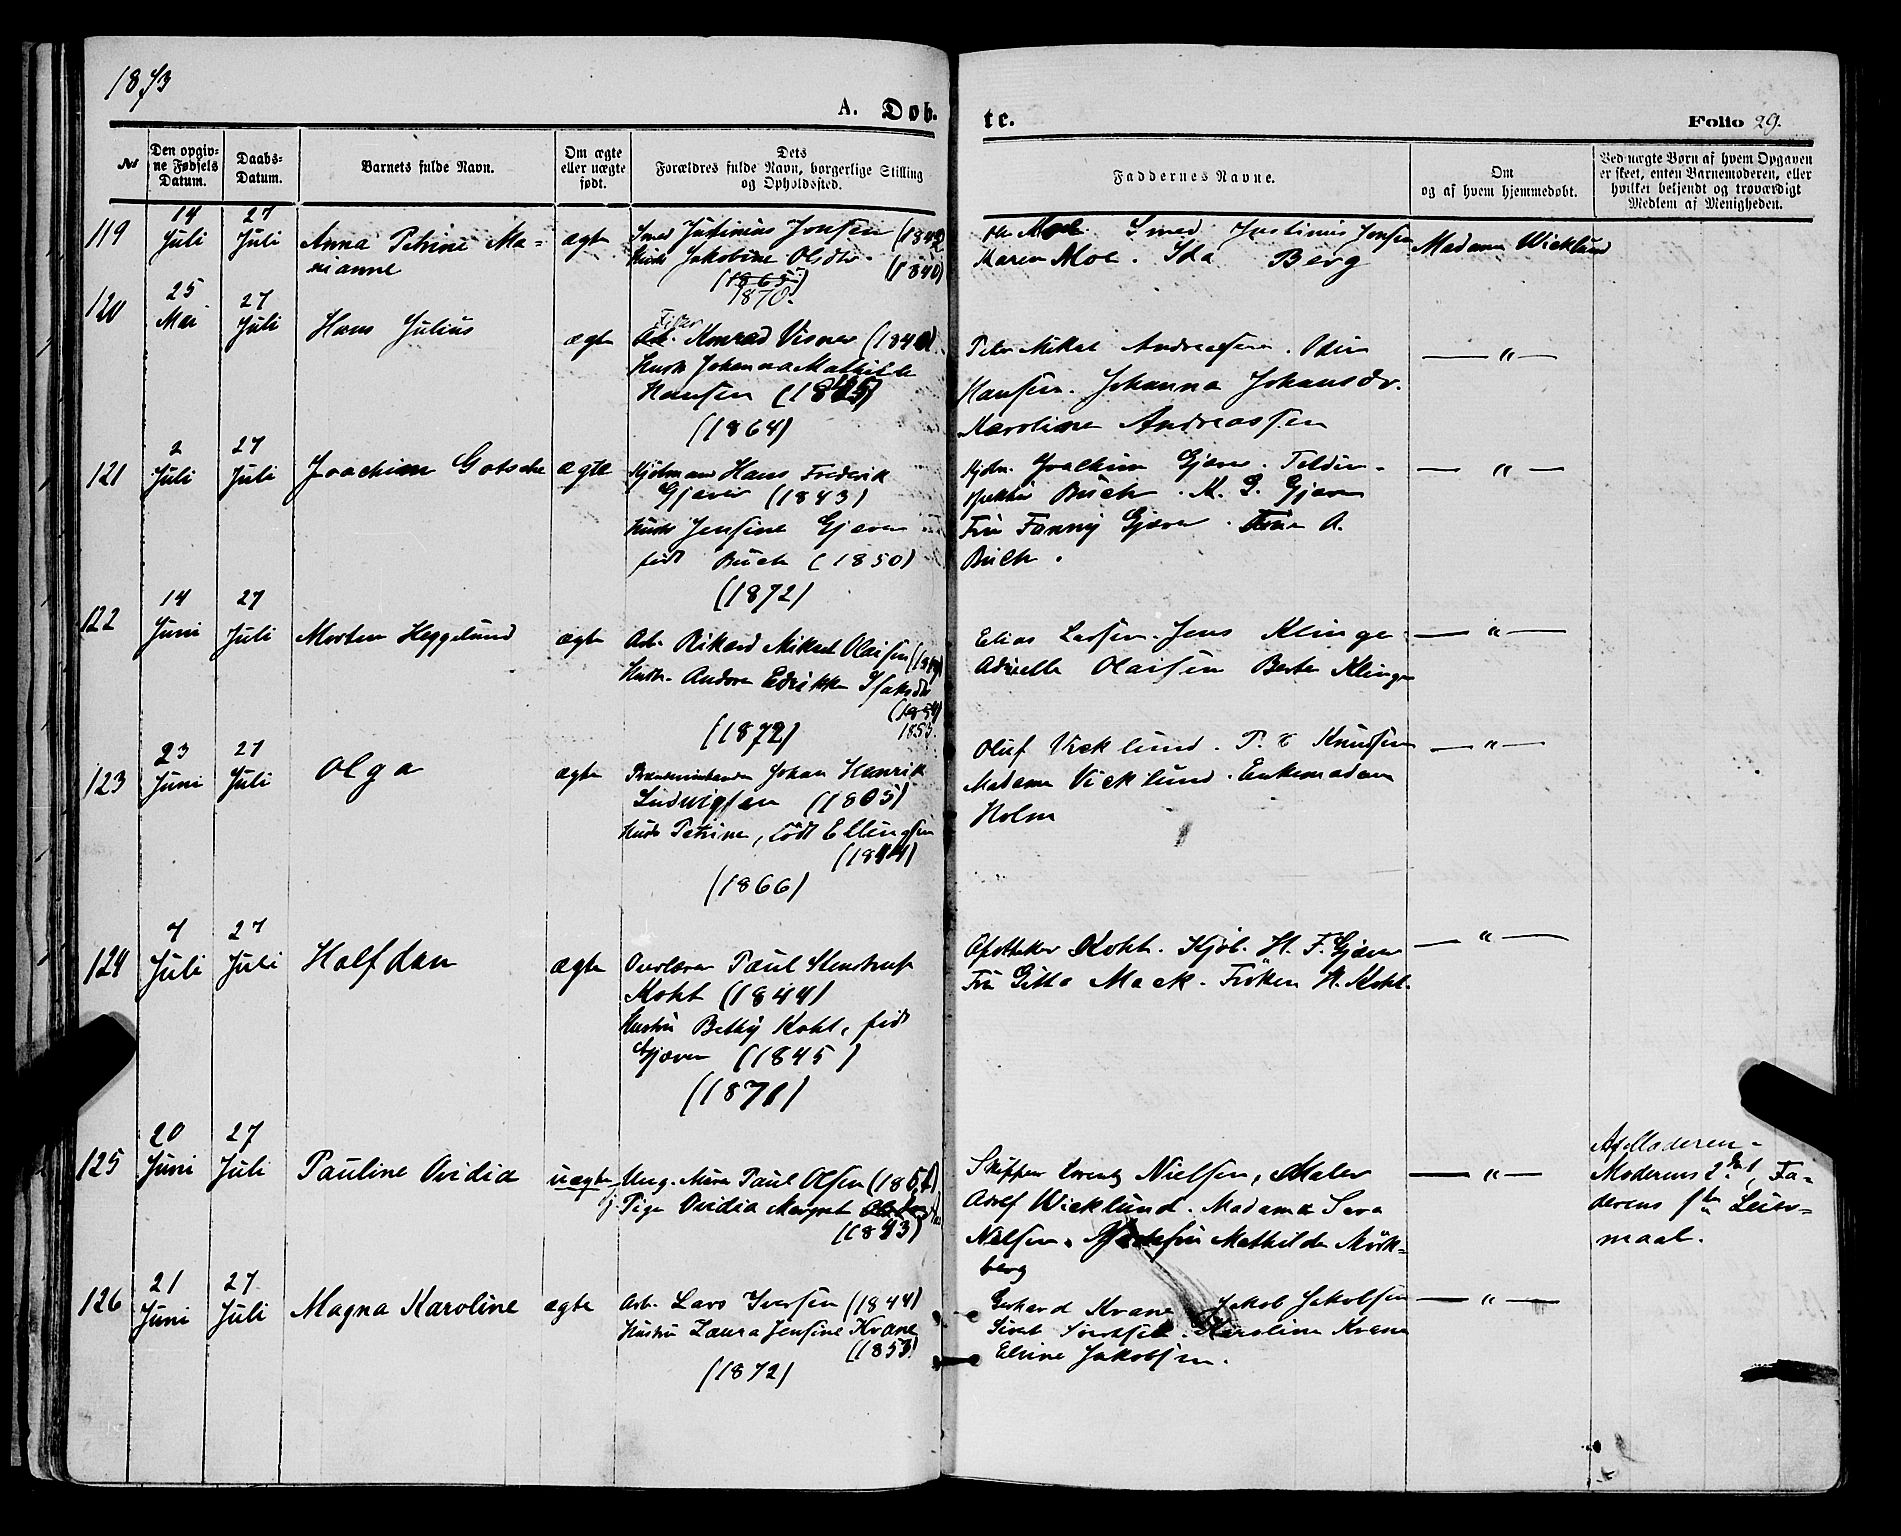 1873
A. Døb-
te.
Folio 29.
No
Den opgiv-
ne Fødsels
Datum.
Daabs-
Datum.
Barnets fulde Navn.
Om ægte
eller uægte
født.
Dets
Forældres fulde Navn, borgerlige Stilling
og Opholdssted.
Faddernes Navne.
Om
og af hvem hjemmedøbt.
Ved uægte Børn af hvem Opgaven
er skeet, enten Barnemoderen, eller
hvilket bekjendt og troværdigt
Medlem af Menigheden.
119
14
Juli
27
Juli
Anna Petrine Ma-
rianne
ægte
Smed Justinius Jonsen (1842
Hust. Jakobine Olsdtr. (1840)
(1865)
1870.
Ole Moe. Smed Justinus Jonsen
Karen Moe. Ida Berg
Madame Wicklund
120
25
Mai
27
Juli
Hans Julius
ægte
Fisker
Arb. Konrad Visnes (1840)
Hustr Johanna Mathilde
Hansen (1845)
(1864)
Peter Mikal Andreassen. Odin
Hansen. Johanna Johansdr.
Karoline Andreassen
— " —
121
2
Juli
27
Juli
Joachim Gotsche
ægte
Kjøbmand Hans Frederik
Gjæver (1843)
Hustr Jensine Gjæver
født Buch (1850)
(1872)
Kjøbm. Joachim Gjæver.
Buch. M. G. Gjæver
Fru Fanny Gjæver. A.
Buch.
— " —
122
14
Juni
27
Juli
Morten Heggelund
ægte
Arb. Rikard Mikael Olaisen
Hustr. Andrea Edrikke Isaksdtr
(1854)
1853
(1872)
Elias Larsen. Jens Klinge
Olaisen Berte Klinge
— " —
123
23
Juni
27
Juli
Olga
ægte
Johan Henrik
Ludwigsen (1805)
Hustr Petrine, født Ellingsen
(1844)
(1866)
Oluf Vicklund. P. C Knudsen
Madame Vicklund. Enkemadam
Holm
— " —
124
7
Juli
27
Juli
Halfdan
ægte
Overlærer Paul Steenstrup
Koht (1844)
Hustru Betty Koht, født
Gjæver (1845)
(1871)
Apotheker Koht. Kjøb. H. F. Gjæver
Fru Gitta Mack. Frøken H. Koht.
— " —
125
20
Juni
27
Juli
Pauline Ovidia
uægte
Ung. Murer Paul Olsen
Pige Ovidia Margret
(1843)
Skipper Lorentz Nielsen, Maler
Adolf Wicklund. Madame Sara
Nielsen. Mathilde Mörk-
berg
— " —
Af Moderen-
Moderens 2det, Fa-
derens 1ste Leier-
maal.
126
21
Juni
27
Juli
Magna Karoline
ægte
Arb. Lars Iversen (1844)
Hustru Laura Jensine Kvane
(1853)
(1872)
Gerhard Kvane Jakob Jakobsen
Karoline Kvane
Elvine Jakobsen.
— " —